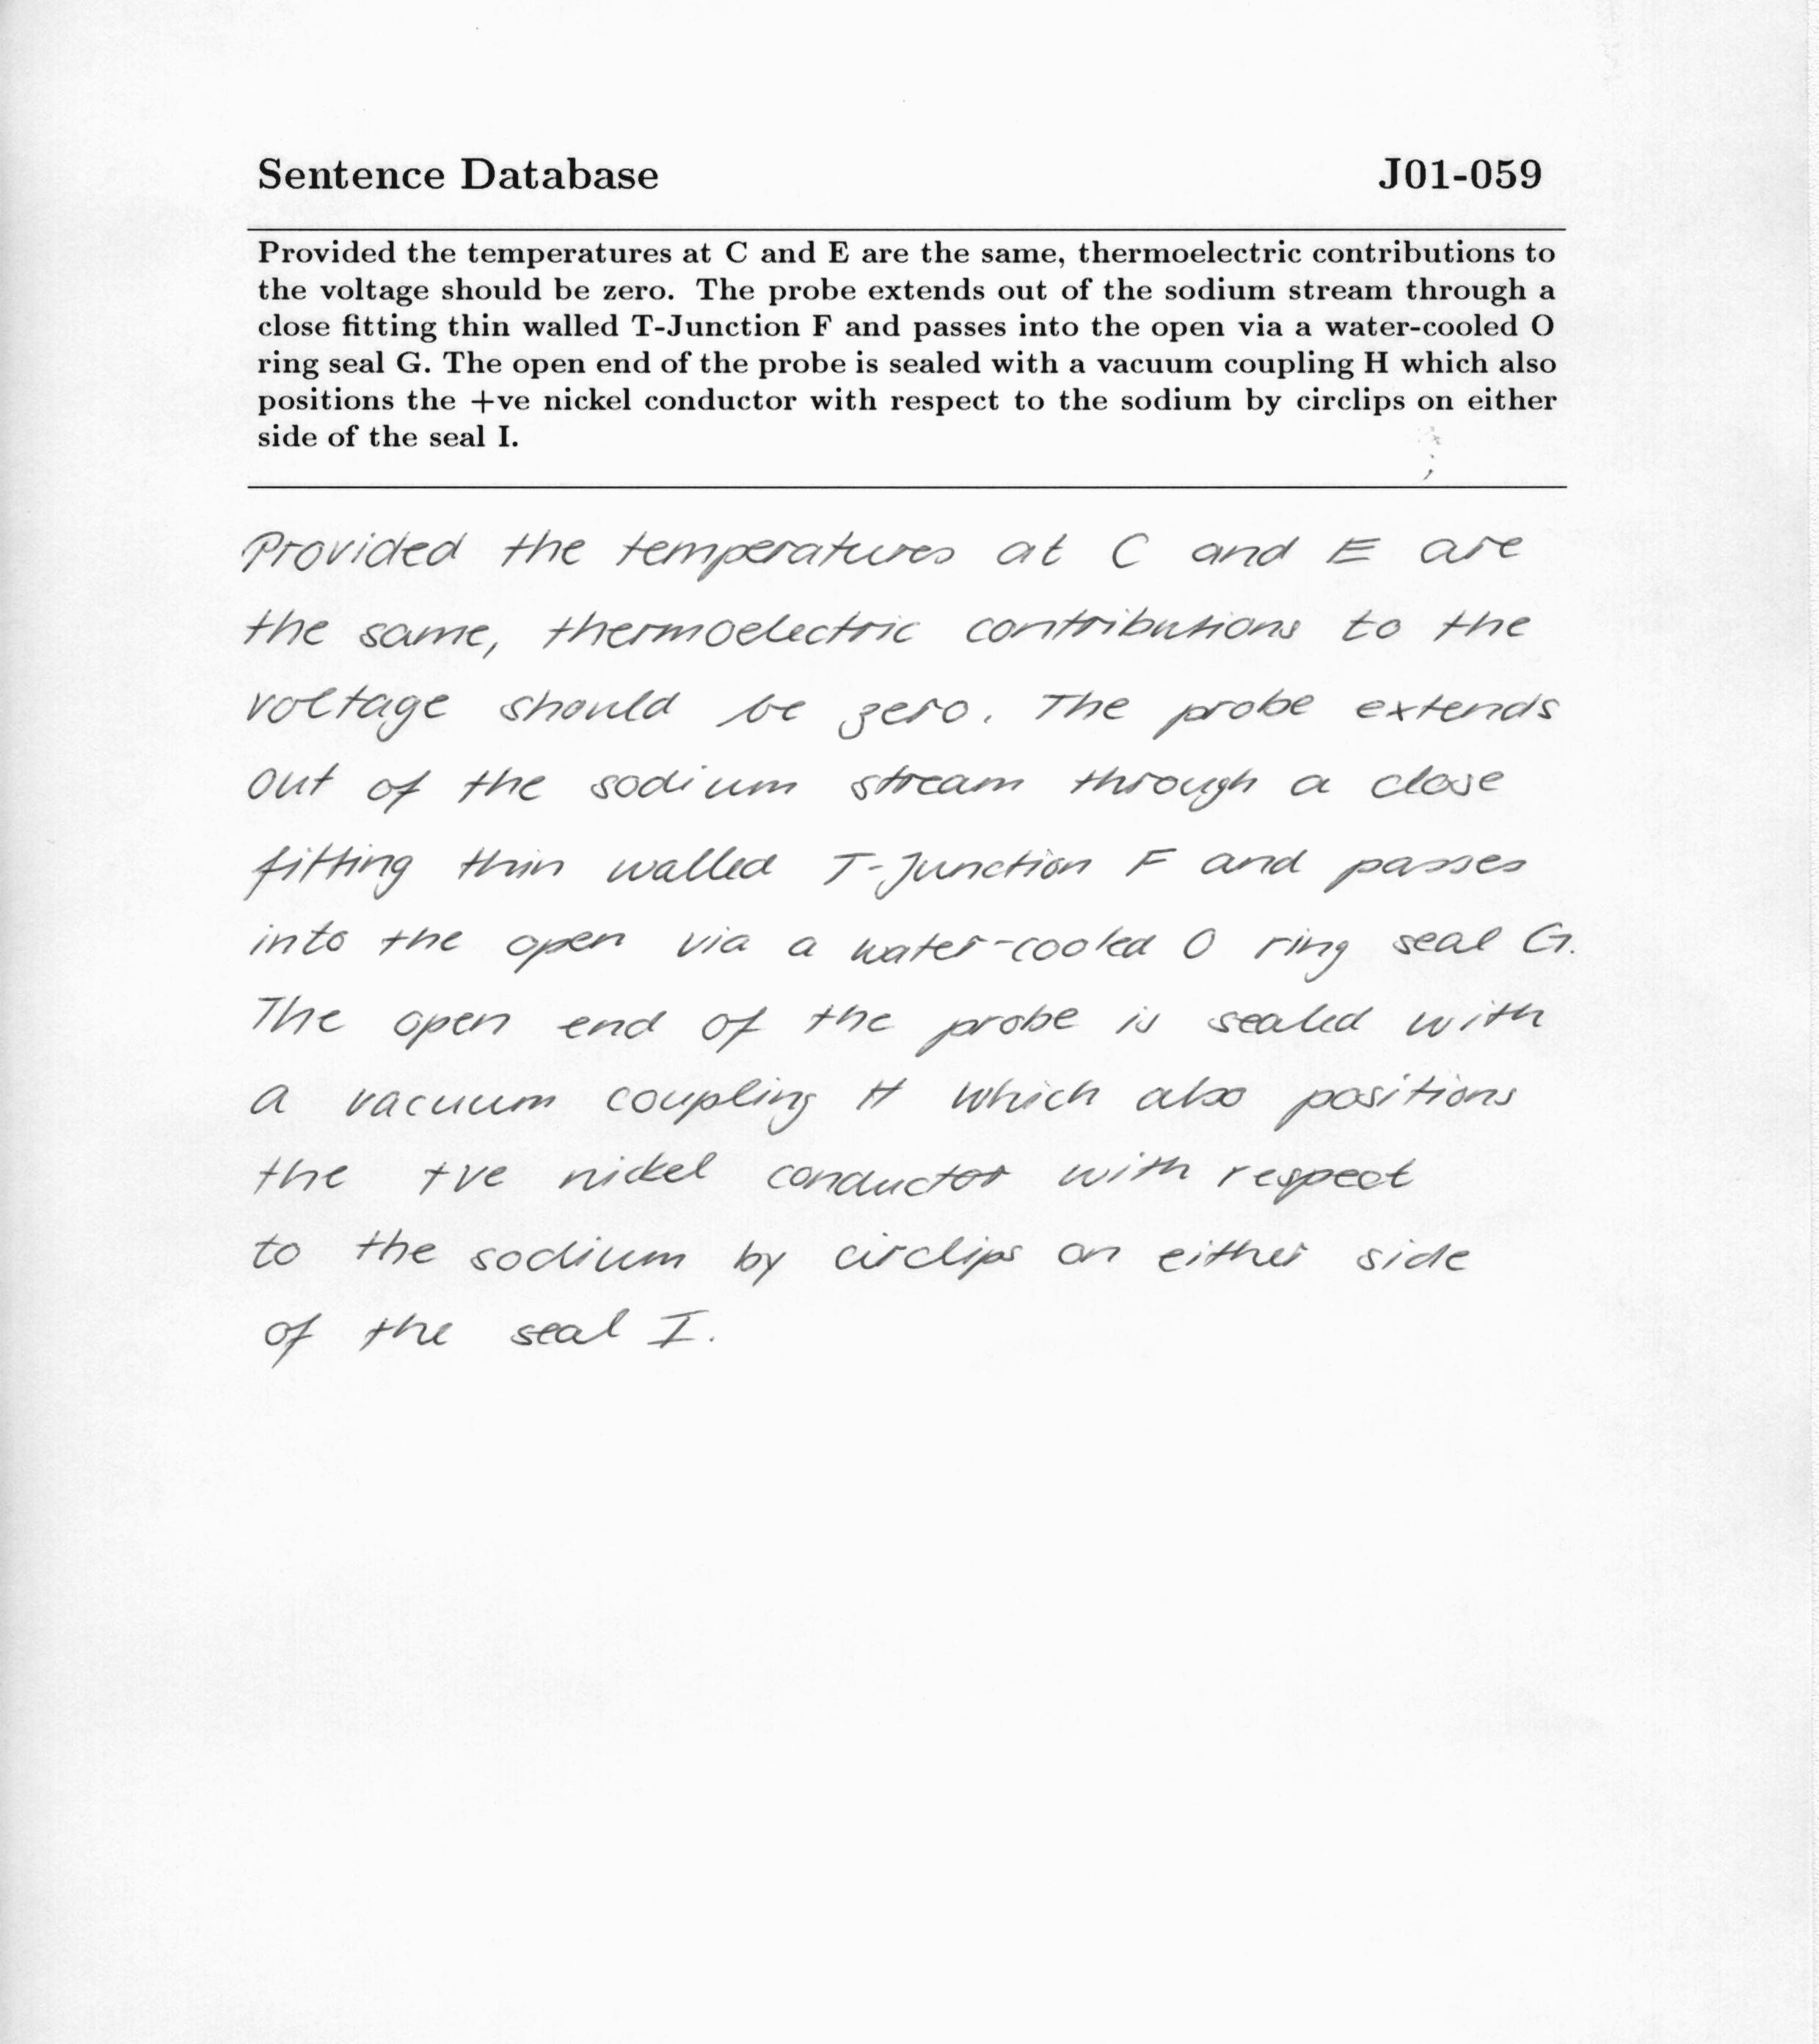 Sentence Database J01-059
Provided the temperatures at C and E are the same, thermoelectric contributions to
the voltage should be zero. The probe extends out of the sodium stream through a
close fitting thin walled T-Junction F and passes into the open via a water-cooled O
ring seal G. The open end of the probe is sealed with a vacuum coupling H which also
positions the +ve nickel conductor with respect to the sodium by circlips on either
side of the seal I.
Provided the temperatures at C and E are
the same, thermoelectric contributions to the
voltage should be zero. The probe extends
out of the sodium stream through a close
fitting thin walled T-Junction F and passes
into the open via a water-cooled O ring seal G.
The open end of the probe is sealed with
a vacuum coupling H which also positions
the +ve nickel conductor with respect
to the sodium by circlips on either side
of the seal I.